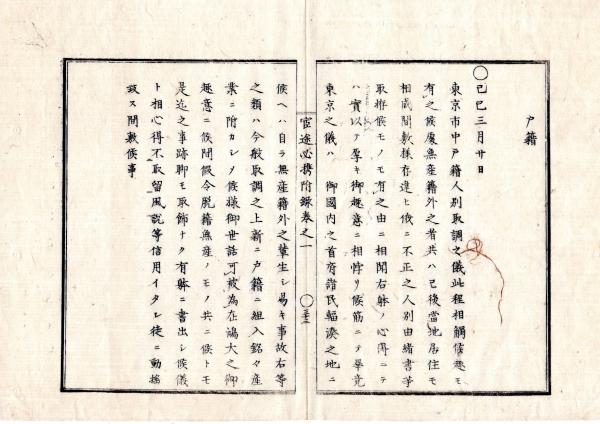 戸籍
○己巳三月廿日
東京市中戸籍人別取調之儀此程相觸候趣モ
有之候處無産籍外之者共ハ已後當地居住モ
相成間敷様存違ヒ俄ニ不正之人別由緒書等
取拵候モノモ有之由ニ相聞右躰ノ心得ニテ
ハ實以テ厚キ御趣意ニ相悖リ候筋ニテ畢竟
東京之儀ハ 御國内之首府諸民輻湊之地ニ
宦途必携附録巻之一
○三十二
候ヘハ自ラ無産籍外之輩生シ易キ事故右等
之類ハ今般取調之上新ニ戸籍ニ組入銘々産
業ニ附カシメ候様御世話可被為在鴻大之御
趣意ニ候間假令脱籍無産ノモノ共ニ候トモ
是迄之事跡聊モ取飾ナク有躰ニ書出シ候儀
ト相心得不取留風説等信用イタシ徒ニ動揺
致ス間敷候事